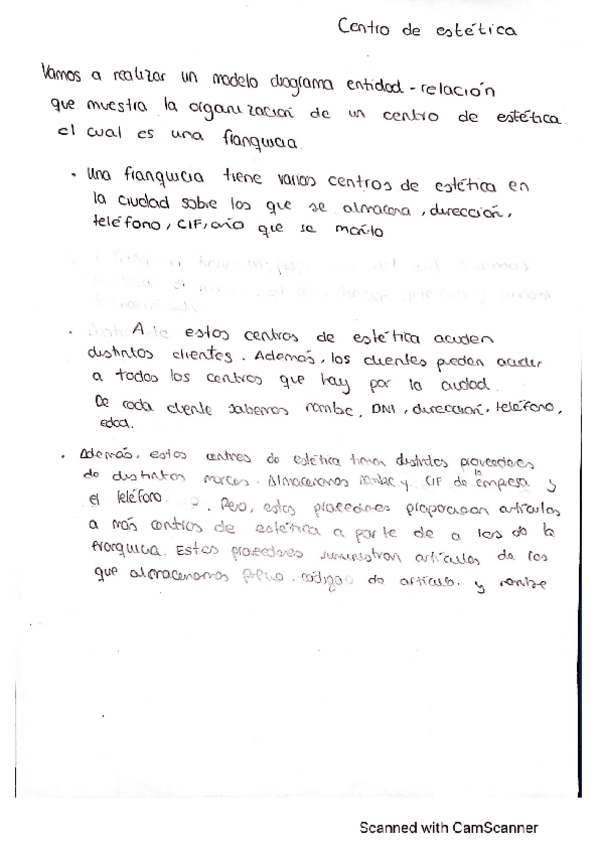 Centro de estética
Vamos a realizar un modelo diagrama entidad-relación
que muestra la organización de un centro de estética
el cual es una franquicia.
• Una franquicia tiene varios centros de estética en
la ciudad sobre los que se almacena, dirección,
teléfono, CIF, año que se montó
• A estos centros de estética acuden
distintos clientes. Además, los clientes pueden acudir
a todos los centros que hay por la ciudad.
De cada cliente sabemos nombre, DNI, dirección, teléfono,
edad.
• Además, estos centros de estética tienen distintos proveedores
de distintas marcas. Almacenamos nombre y CIF de la empresa y
el teléfono. Pero, estos proveedores proporcionan artículos
a más centros de estética a parte de a los de la
franquicia. Estos proveedores suministran artículos de los
que almacenamos precio, código de artículo, y nombre
Scanned with CamScanner